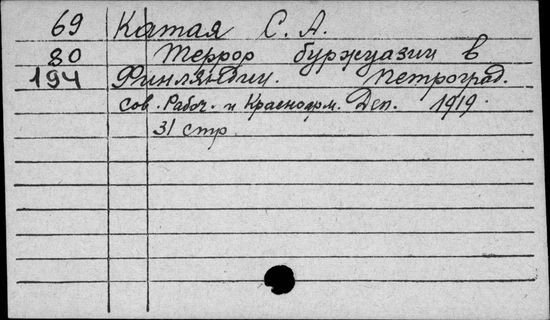 69 Катая С. А.
80 Террор буржуазии в
194 Финляндии. Петроград.
Сов. Рабоч. и Красноарм. Деп. 1919.
31 стр